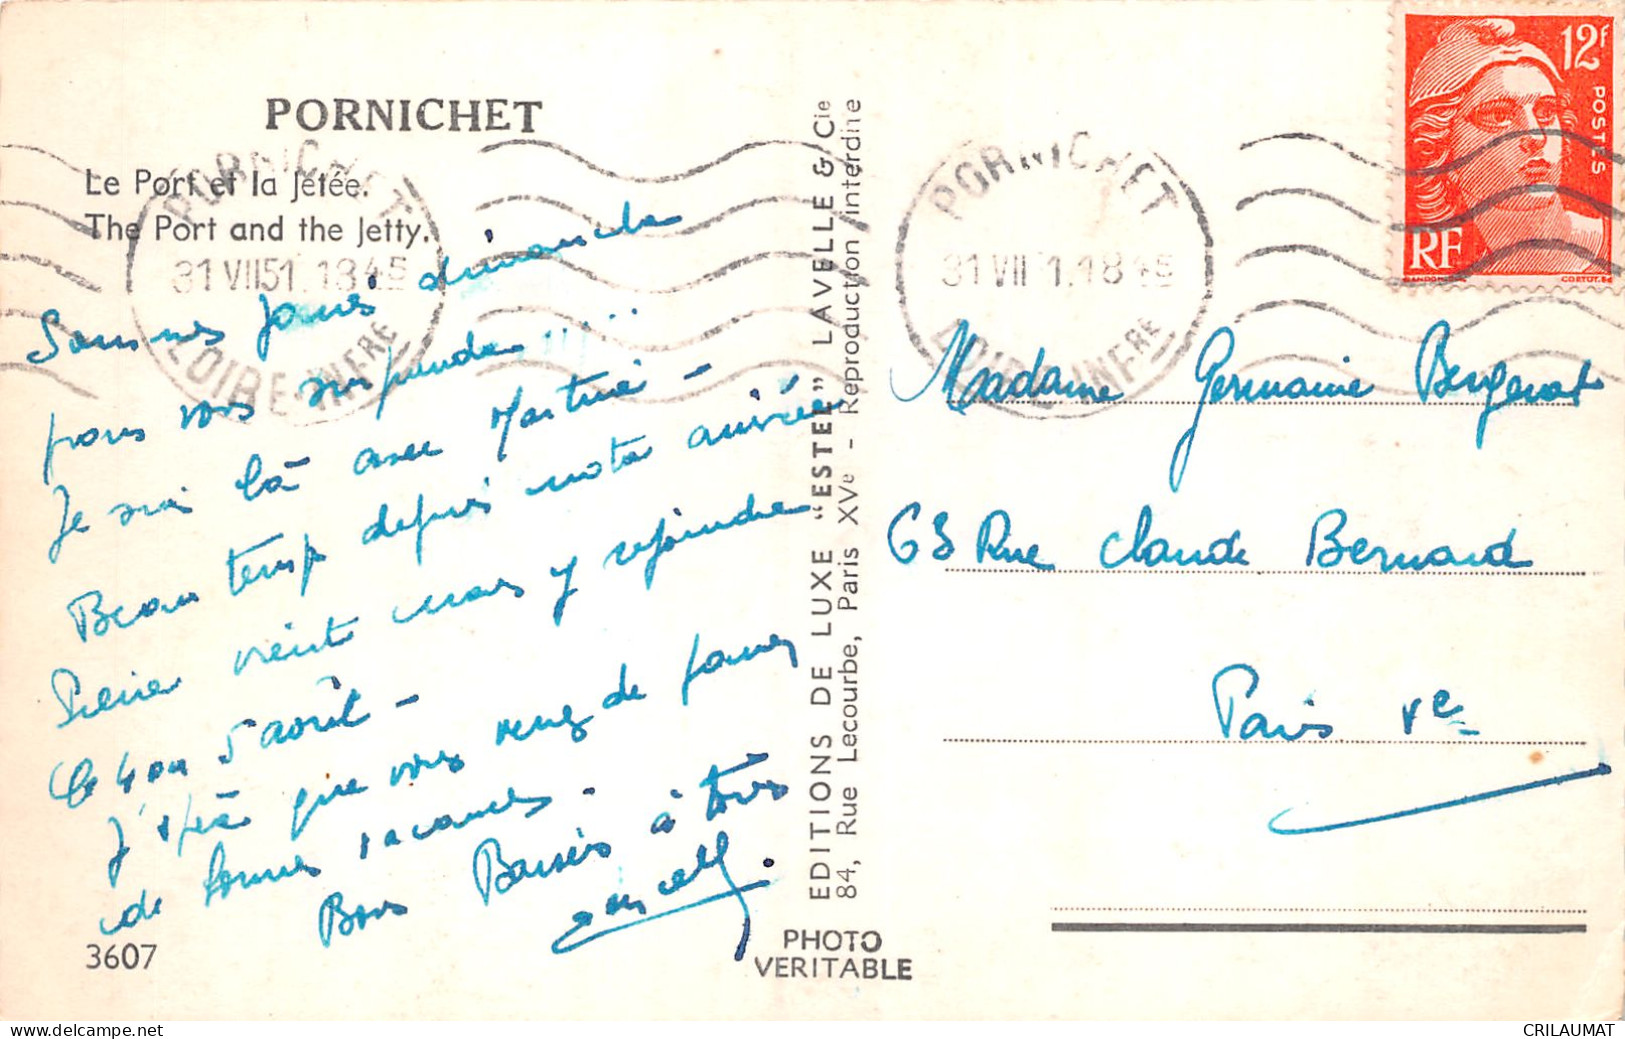 PORNICHET
Le Port et la Jetée.
The Port and the Jetty.
PORNICHET
31 VII 51.1845
LOIRE-INFRE
Sommes dimanche
pour vous
Je suis là avec
Beau temps depuis notre arrivée
vient nous y rejoindre
le 4 ou 5 août -
J'espère que vous venez de passer
de bonnes vacances -
Bons Baisers à tous
3607
EDITIONS DE LUXE "ESTEL" LAVELLE & Cie
84, Rue Lecourbe, Paris XVe - Reproduction interdite
PHOTO
VERITABLE
PORNICHET
31 VII 1.1845
LOIRE-INFRE
12f
POSTES
RF
GANDON
CORTOT.SC
Madame Germaine
63 Rue Claude Bernard
Paris Ve
CRILAUMAT
https://www.delcampe.net